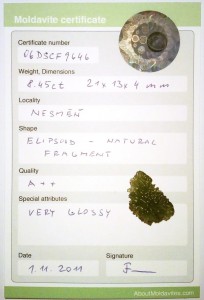 Moldavite certificate
Certificate number
06D3CF9646
Weight, Dimensions
8.45ct 21 x 13 x 4 mm
Locality
NESMĚŇ
Shape
ELIPSOID - NATURAL
FRAGMENT
Quality
A++
Special attributes
VERY GLOSSY
Date
Signature
1.11.2011
AboutMoldavites.com